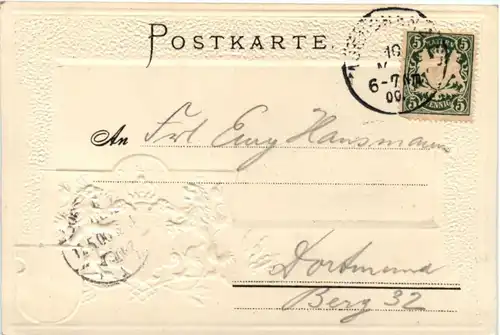 POSTKARTE.
10
6-7 Nm
00
BAYERN
5 5
PFENNIG
An Frl Emy Hansmann
Dortmund
Berg 32